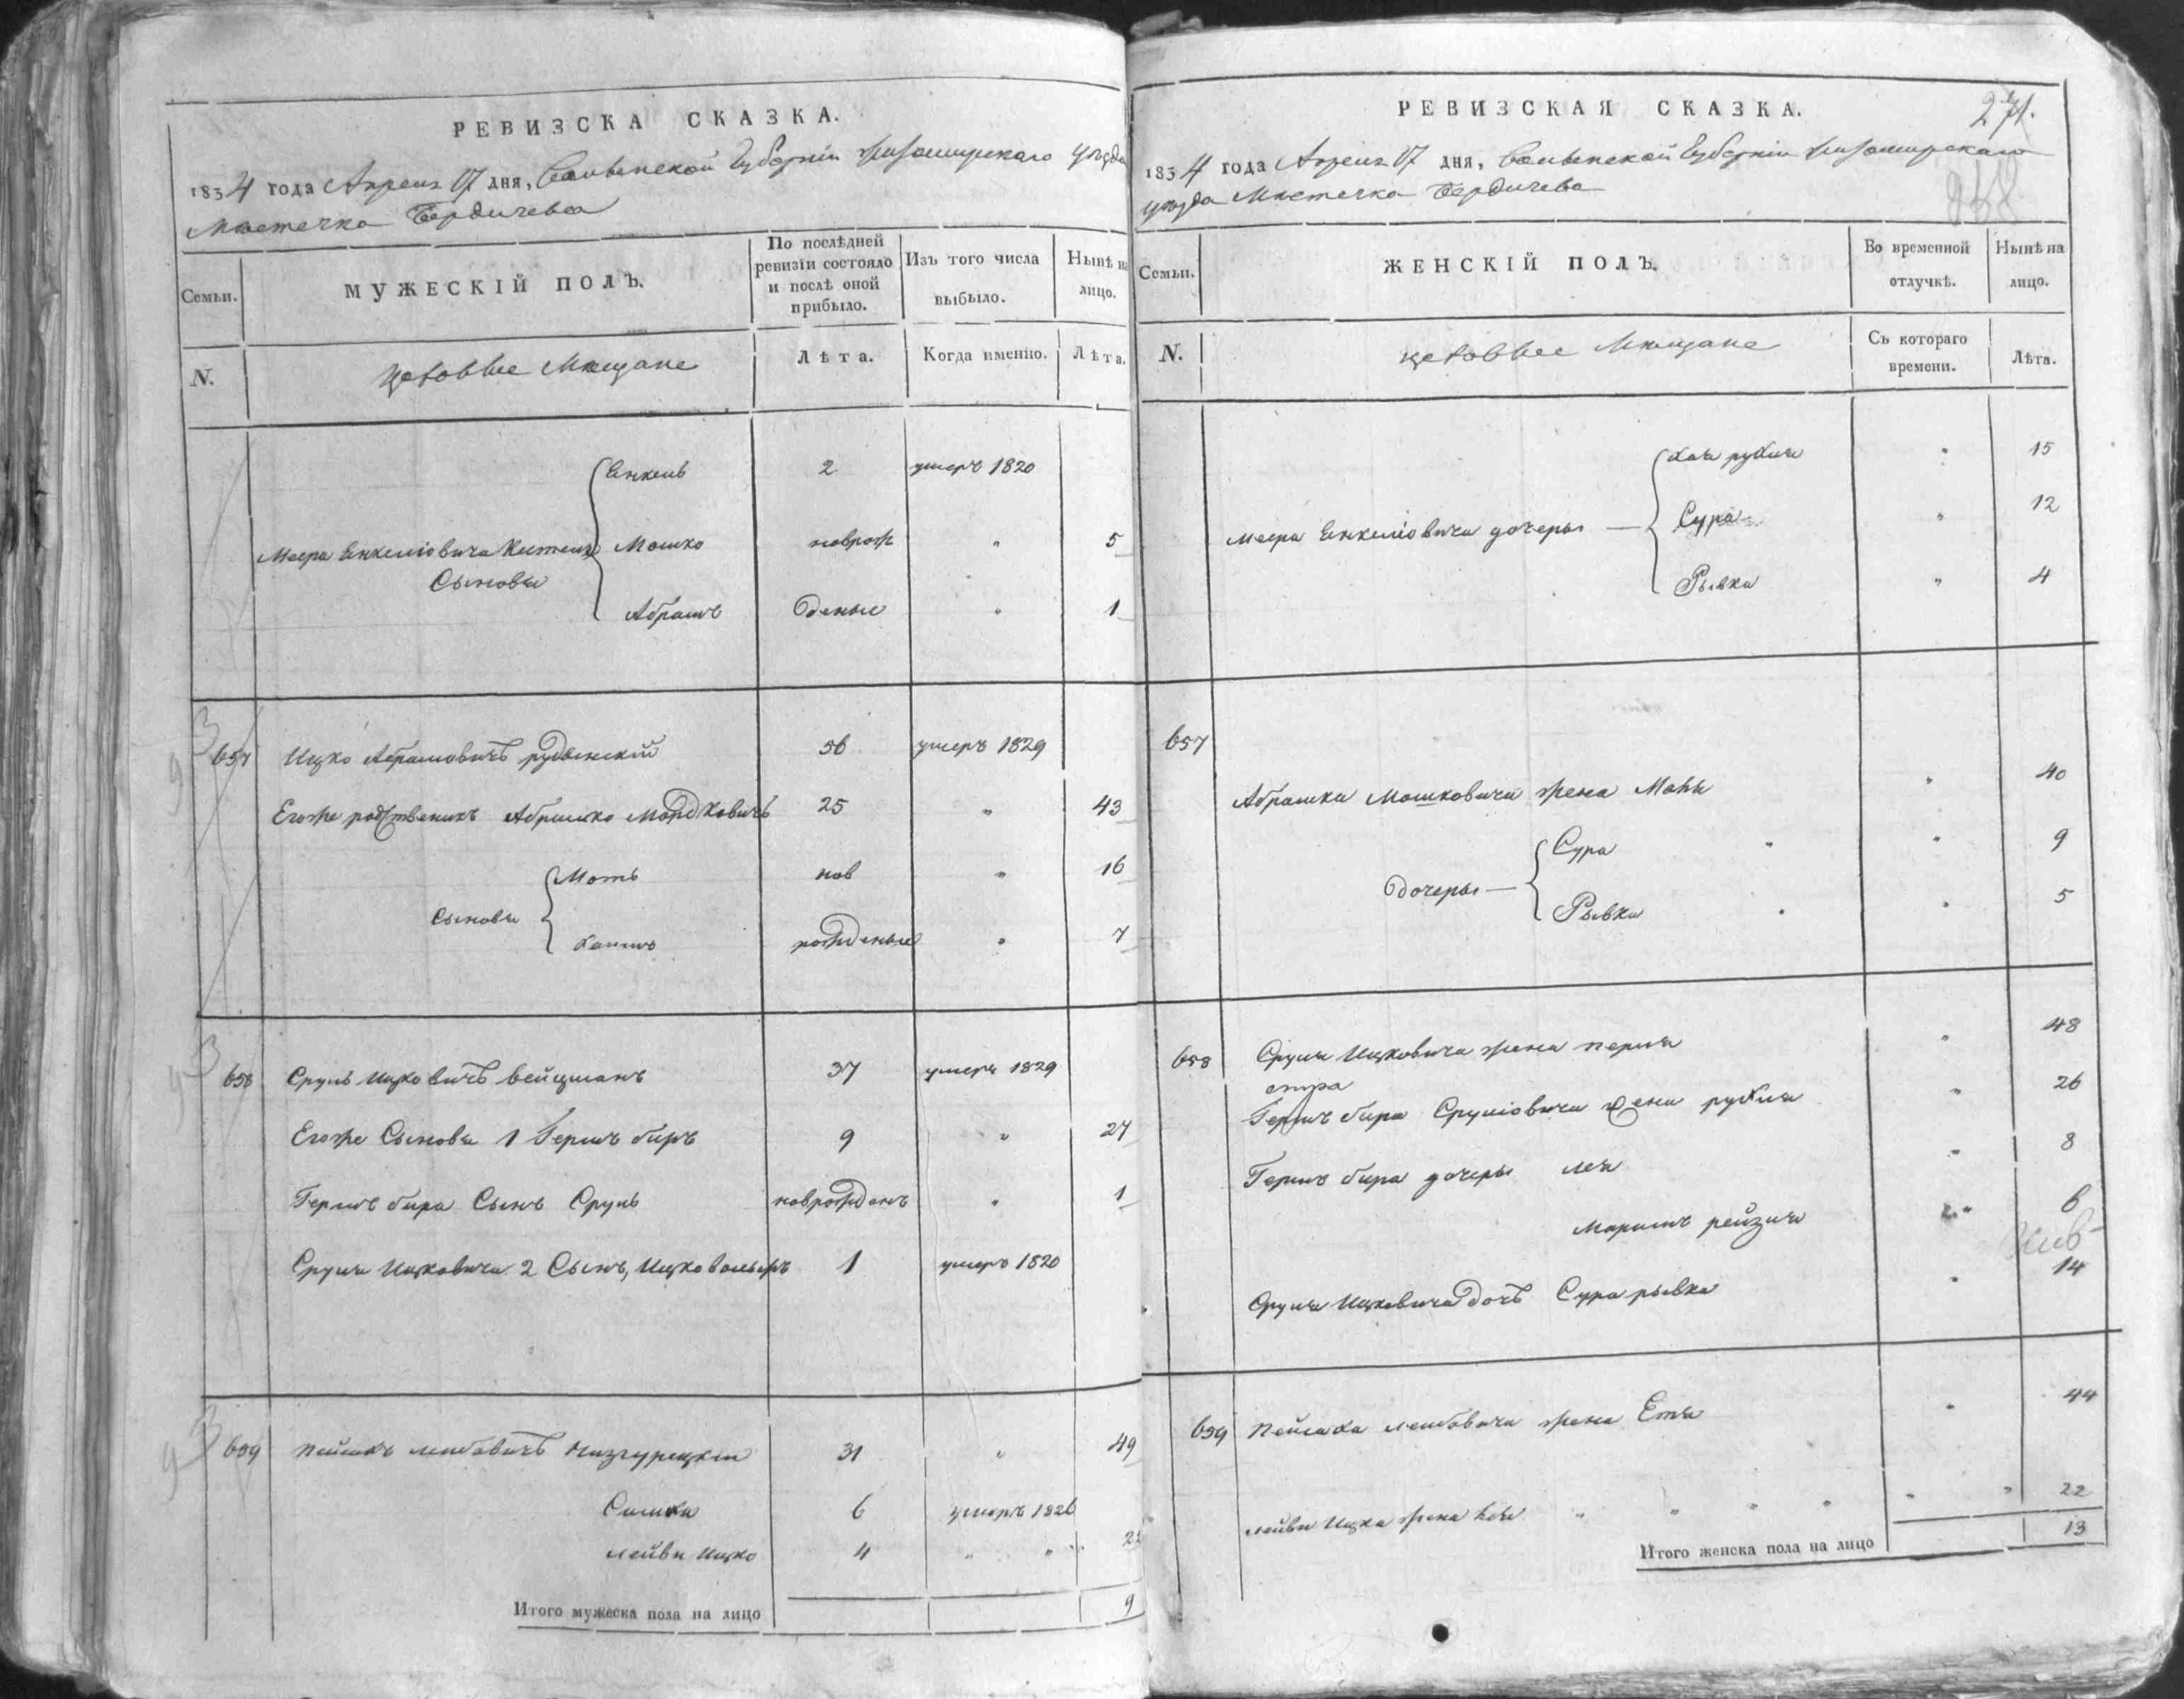 РЕВИЗСКА СКАЗКА.
1834 года Апреля 17 дня, Волынской Губерніи Житомирскаго уезда
Местечка Бердичева
Семьи.
МУЖЕСКІЙ ПОЛЪ.
По послѣдней ревизіи состояло и послѣ оной прибыло.
Изъ того числа выбыло.
Нынѣ на лицо.
N.
Цеховые Мещане
Лѣта.
Когда именно.
Лѣта.
Енкель 2 умеръ 1820
Меера Енкеліовича
Мошко новрож " 5
Сыновья
Абрамъ деные " 1
657 Ицко Абрамовичъ 56 умеръ 1829
Егоже родственикъ Абрамко Мордковичъ 25 " 43
Моть нов " 16
Сыновья
рожденые " 7
658 Сруль Ицковичъ Вейцманъ 37 умеръ 1829
Егоже Сыновья 1 Гершъ беръ 9 " 27
Гершъ бера Сынъ Сруль новрожденъ " 1
Сруля Ицковича 2 Сынъ, Ицко вольфъ 1 умеръ 1820
659 Пейсахъ Лейбовичъ 31 " 49
6 умеръ 1826
Лейви Ицко 4 " "
Итого мужеска пола на лицо 9
РЕВИЗСКАЯ СКАЗКА.
271.
1834 года Апреля 17 дня, Волынской Губерніи Житомирскаго
уезда Местечка Бердичева
Семьи.
ЖЕНСКІЙ ПОЛЪ.
Во временной отлучкѣ.
Нынѣ на лицо.
N.
Цеховые Мещане
Съ котораго времени.
Лѣта.
Хая рухля " 15
Меера Енкеліовича дочеры — Сура " 12
Рывка " 4
657
Абрашки Мошковича жена " 40
Сура " " 9
дочеры —
Рывка " " 5
658 Сруля Ицковича жена перля " 48
Гершъ бера Сруліовича жена рухля " 26
Гершъ бера дочеры лея " 8
Марьимъ рейзля " 6
Сруля Ицковича дочь Сура рывка " 14
659 Пейсаха Лейбовича жена Етя " 44
Лейви Ицка жена " " " " " " 22
Итого женска пола на лицо 13